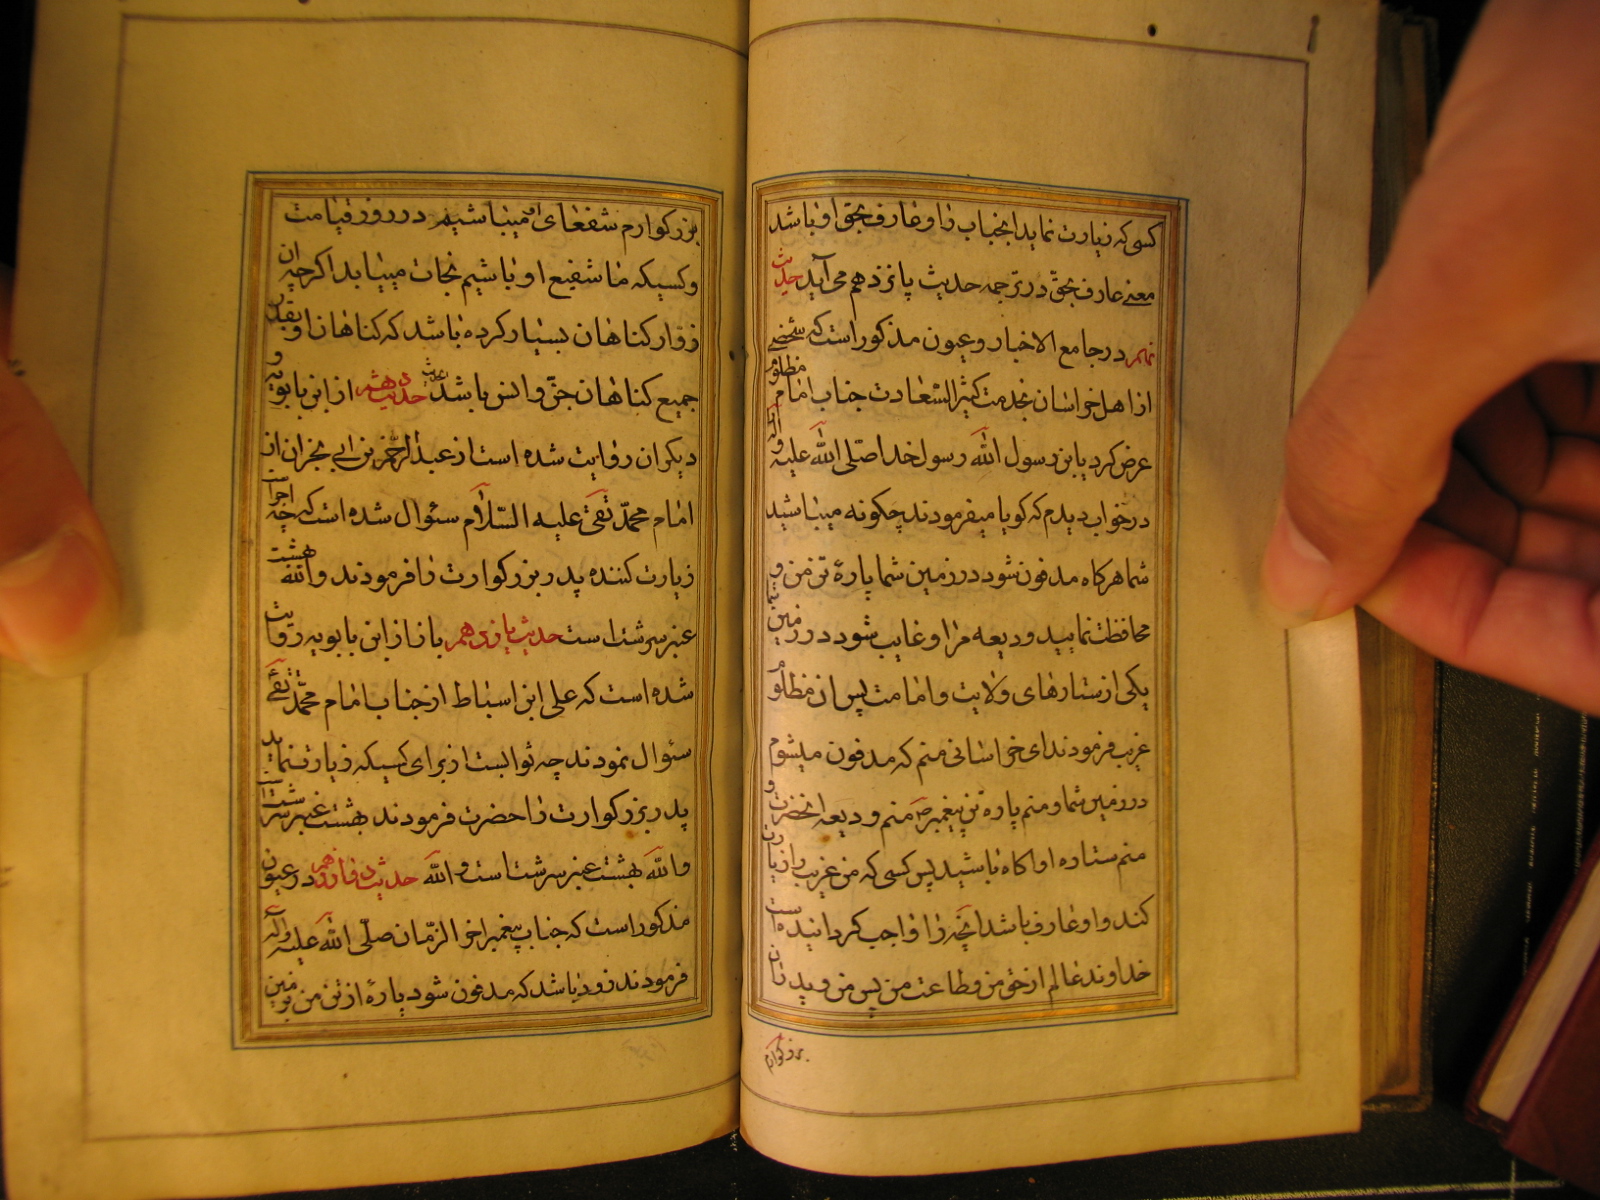 کسی که زیارت نماید انجناب را و عارف بحق او باشد
معنے عارف بحق در ترجمه حدیث پانزدهم می آید حدیث
نهم در جامع الاخبار و عیون مذکور است که شخصے
از اهل خراسان بخدمت کثیر السعادت جناب امام مظلوم
عرض کرد یابن رسول الله رسول خدا صلی الله علیه و آله
در خواب دیدم که کویا میفرمودند چکونه میباشید
شما هرکاه مدفون شود در زمین شما پارۀ تن من و
محافظت نمایید ودیعه مرا و غایب شود در زمین شما
یکی از ستارهای ولایت و امامت پس ان مظلوم
غریب فرمودند ای خراسانی منم که مدفون میشوم
در زمین شما و منم پاره تن پیغمبر منم ودیعه انحضرت و
منم ستاره او اکاه باشید پس کسی که من غریب را زیارت
کند و او عارف باشد انچه را واجب کردانیده است
خداوند عالم از حق من و طاعت من پس من و پدران
بزرکوارم
بزرکوارم شفعای او میباشیم در روز قیامت
و کسیکه ما شفیع او باشیم نجات مییابد اکرچه ان
زوار کناهان بسیار کرده باشد که کناهان او بقدر
جمیع کناهان جن و انس باشد حدیث دهم از ابن بابویه و
دیکران روایت شده است از عبد الرحمن بن ابی نجران از
امام محمد تقی علیه السلام سئوال شده است که چه اجر است
زیارت کننده پدر بزرکوارت را فرمودند والله هشت
عنبر سرشت است حدیث یازدهم باز از ابن بابویه روایت
شده است که علی ابن اسباط از جناب امام محمد تقی
سئوال نمودند چه ثوابست از برای کسیکه زیارت نماید
پدر بزرکوارت را حضرت فرمودند بهشت عنبر سرشت است
والله بهشت عنبر سرشت است والله حدیث دوازدهم در عیون
مذکور است که جناب پیغمبر اخر الزمان صلی الله علیه و آله
فرمودند زود باشد که مدفون شود پارۀ از تن من بزمین